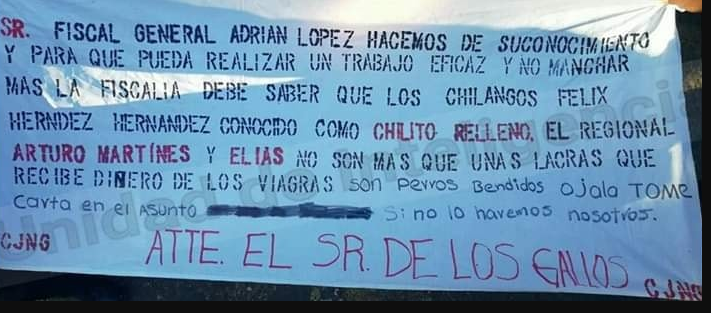 SR. FISCAL GENERAL ADRIAN LOPEZ HACEMOS DE SUCONOCIMIENTO
Y PARA QUE PUEDA REALIZAR UN TRABAJO EFICAZ Y NO MANCHAR
MAS LA FISCALIA DEBE SABER QUE LOS CHILANGOS FELIX
HERNDEZ HERNANDEZ CONOCIDO COMO CHILITO RELLENO, EL REGIONAL
ARTURO MARTÍNES Y ELIAS NO SON MAS QUE UNAS LACRAS QUE
RECIBE DINERO DE LOS VIAGRAS SON Perros Bendidos OJala TOME
Carta en el Asunto Si no lo haremos nosotros.
CJNG ATTE. EL SR. DE LOS GALLOS CJNG
Unidad de Inteligencia